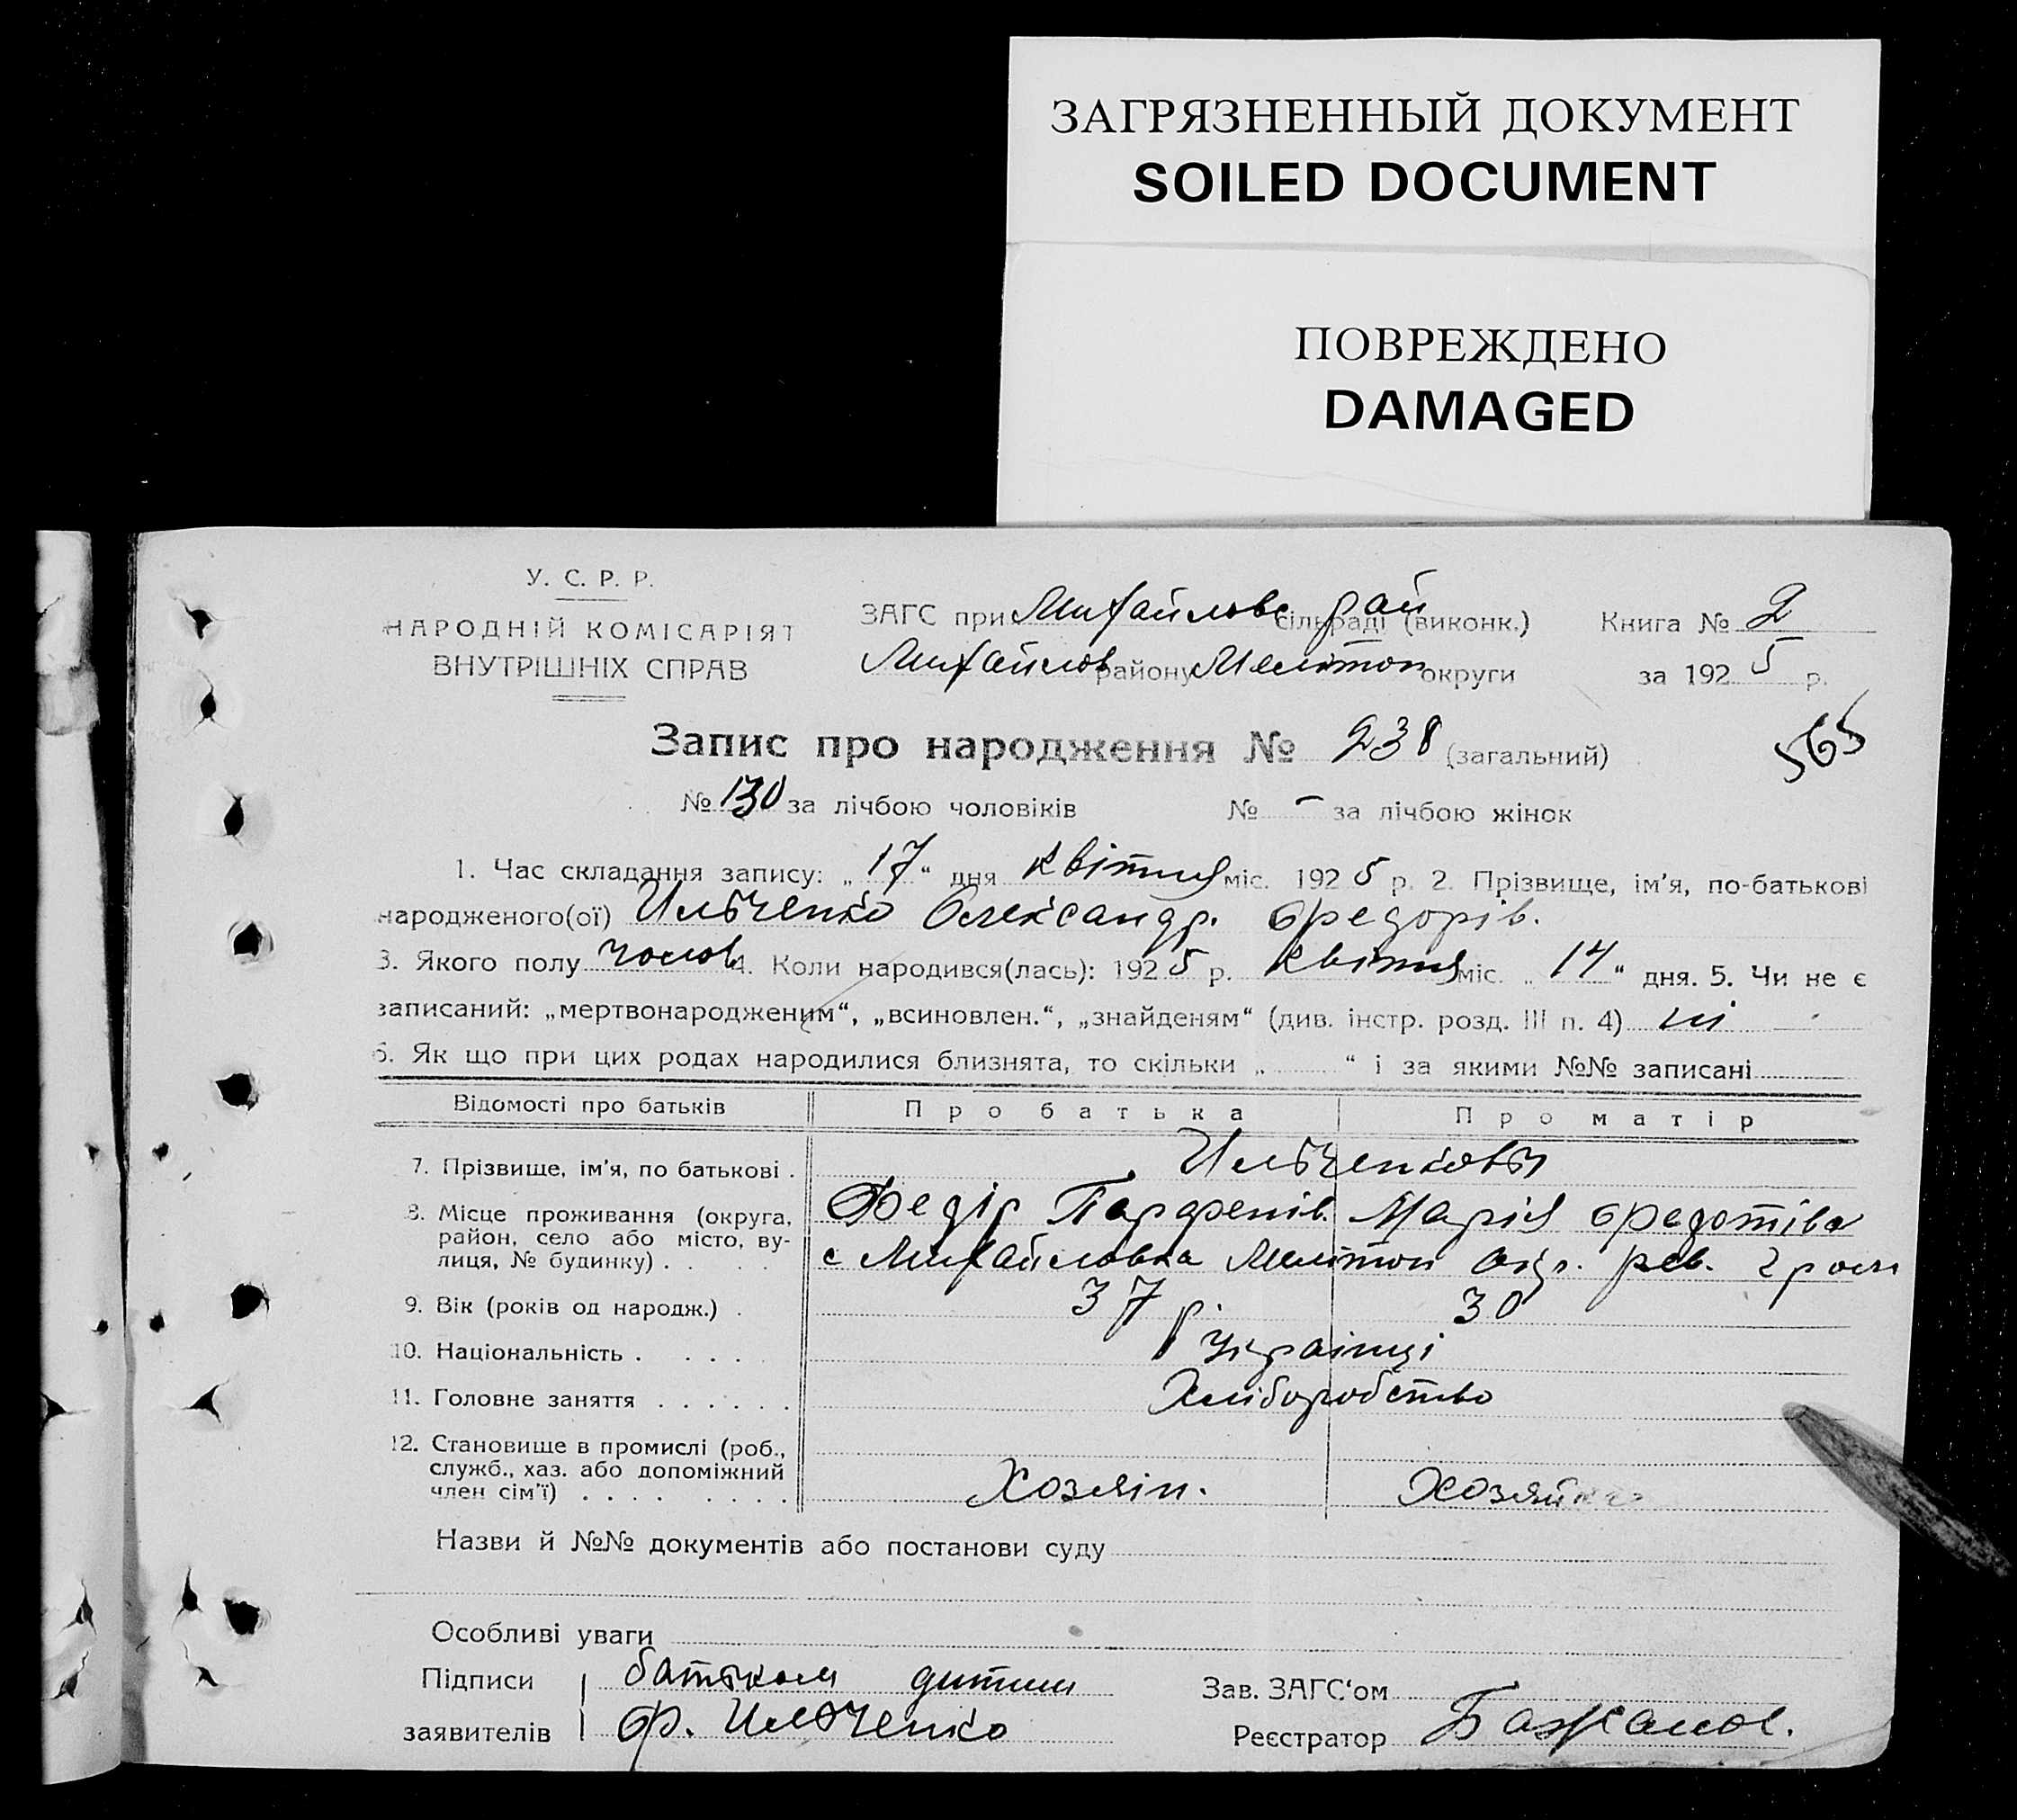 ЗАГРЯЗНЕННЫЙ ДОКУМЕНТ
SOILED DOCUMENT
ПОВРЕЖДЕНО
DAMAGED
У. С. Р. Р.
НАРОДНІЙ КОМІСАРІЯТ
ВНУТРІШНІХ СПРАВ
ЗАГС при Михайловс сільраді рай (виконк.)
Михайлов району Мелітоп округи
Книга № 2
за 192 5 р.
565
Запис про народження № 238 (загальний)
№ 130 за лічбою чоловіків № – за лічбою жінок
1. Час складання запису: „ 17 “ дня квітня міс. 192 5 р. 2. Прізвище, ім'я, по-батькові
народженого(ої) Ильченко Олександр. Федорів.
3. Якого полу чолов 4. Коли народився(лась): 192 5 р. квітня міс. „ 14 “ дня. 5. Чи не є
записаний: „мертвонародженим“, „всиновлен.“, „знайденям“ (див. інстр. розд. III п. 4) ні
6. Як що при цих родах народилися близнята, то скільки „ “ і за якими №№ записані
Відомості про батьків Про батька Про матір
7. Прізвище, ім'я, по батькові . Ильченковы
8. Місце проживання (округа, район, село або місто, вулиця, № будинку) . .
Федір Парфенів. Марія Федотівна
с Михайловка Мелітоп окр.
9. Вік (років од народж.) . 37 р. 30
10. Національність . . . . . Українці
11. Головне заняття . . . . . . Хліборобство
12. Становище в промислі (роб.,
служб., хаз. або допоміжний
член сім'ї) . . . . . . . . Хозяін. Хозяйка
Назви й №№ документів або постанови суду
Особливі уваги
Підписи батьком дитини
заявителів Ф. Ильченко
Зав. ЗАГС‘ом
Реєстратор Бажанов.